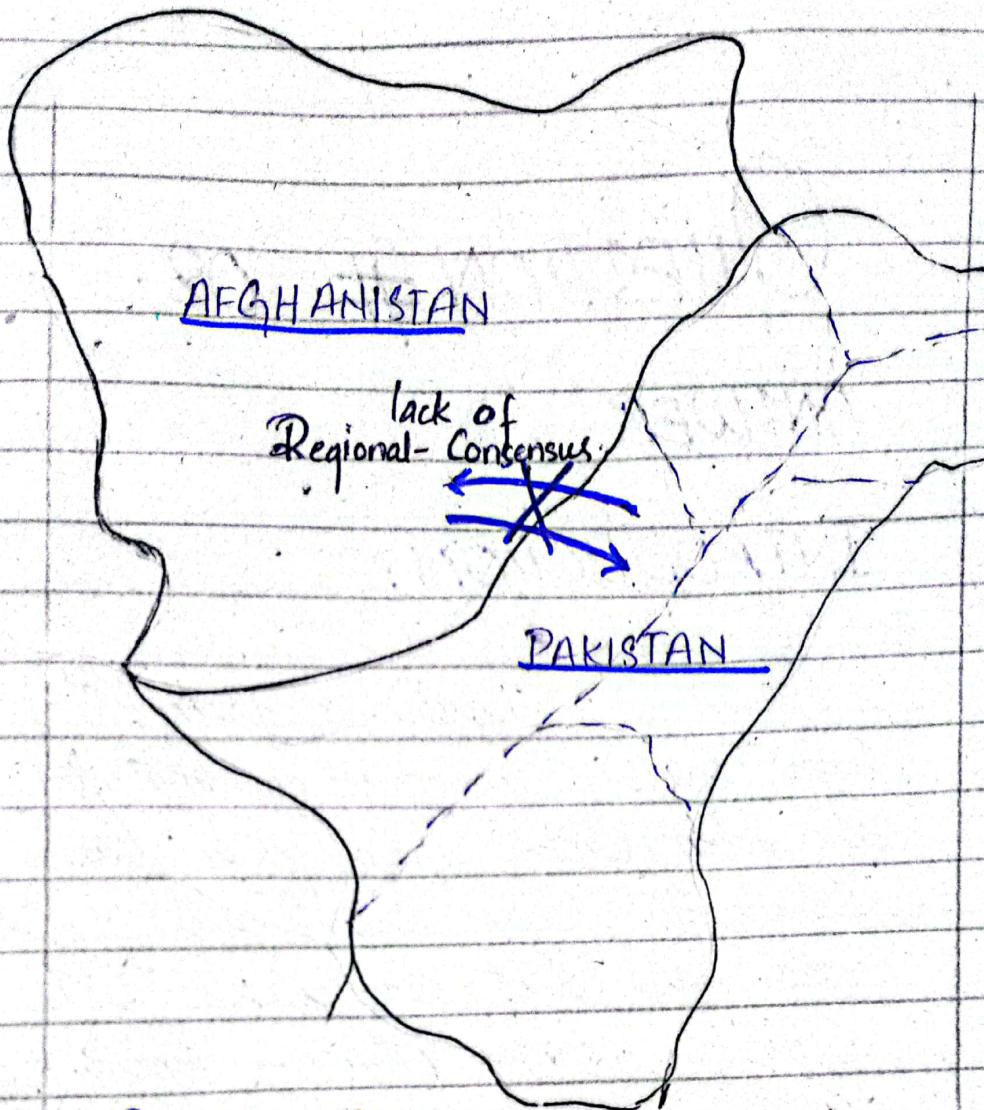 AFGHANISTAN
lack of
Regional- Consensus
PAKISTAN